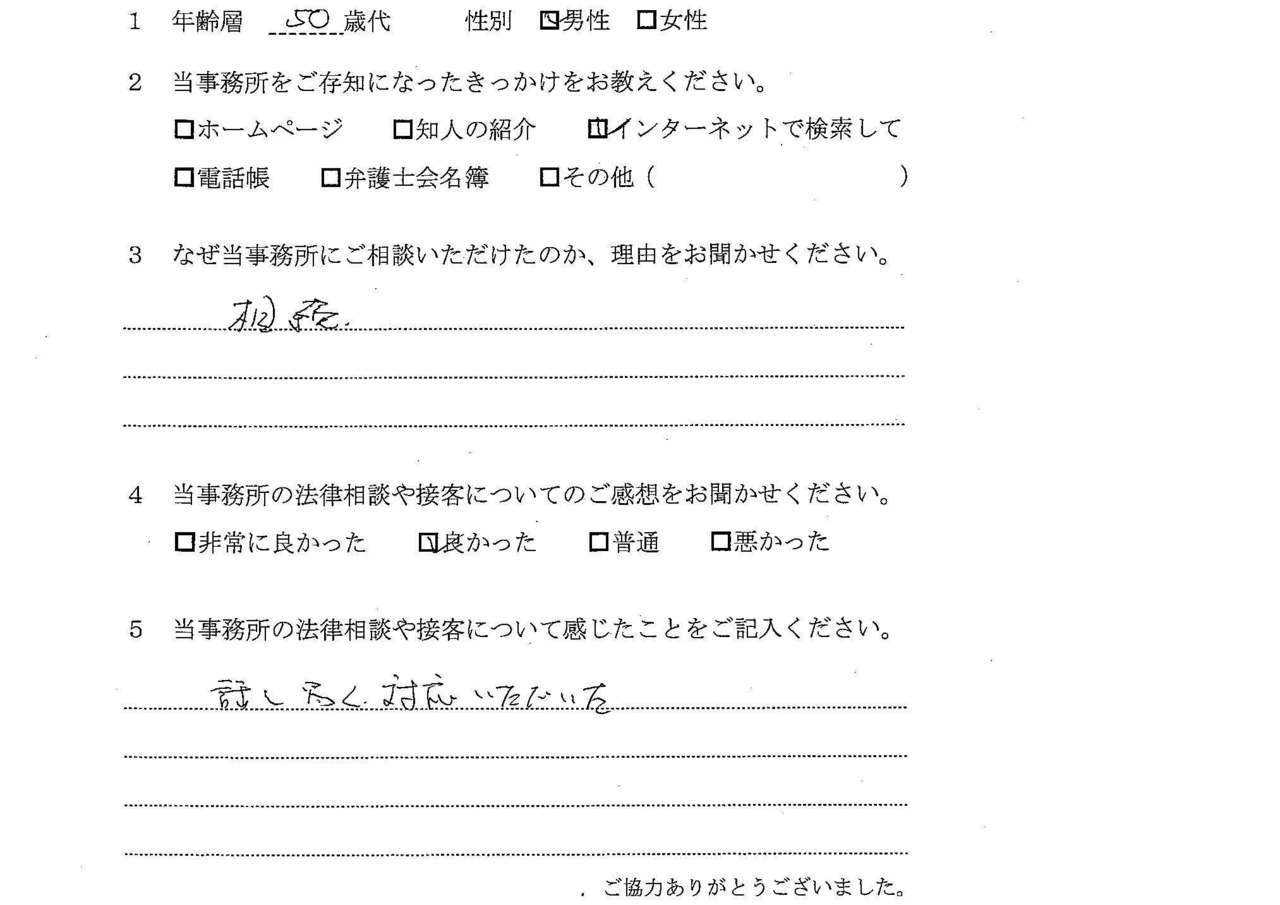 1 年齢層 50歳代 性別 ☑男性 □女性
2 当事務所をご存知になったきっかけをお教えください。
□ホームページ □知人の紹介 ☑インターネットで検索して
□電話帳 □弁護士会名簿 □その他( )
3 なぜ当事務所にご相談いただけたのか、理由をお聞かせください。
相続.
4 当事務所の法律相談や接客についてのご感想をお聞かせください。
□非常に良かった ☑良かった □普通 □悪かった
5 当事務所の法律相談や接客について感じたことをご記入ください。
話し 対応いただいた
ご協力ありがとうございました。